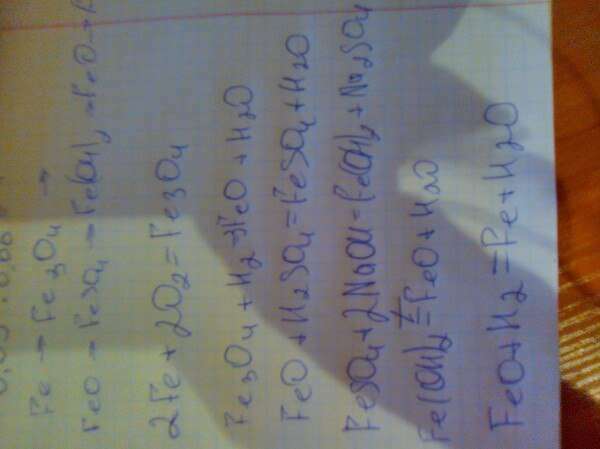 Fe → Fe3O4 →
FeO → FeSO4 → Fe(OH)2 → FeO →
2Fe + 2O2 = Fe3O4
Fe3O4 + H2 → 3FeO + H2O
FeO + H2SO4 = FeSO4 + H2O
FeSO4 + 2NaOH = Fe(OH)2 + Na2SO4
Fe(OH)2 t= FeO + H2O
FeO + H2 = Fe + H2O